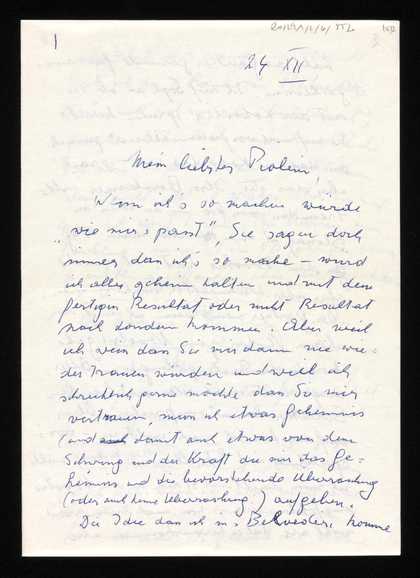 1
24 XII
Mein liebster Prolein,
Wenn ich's so machen würde
"wie mir's passt", Sie sagen doch
immer dan ich's so mache – würd
ich alles geheim halten und mit dem
fertigen Resultat oder nicht Resultat
nach London kommen. Aber weil
ich wein dan Sie mir dann nie wie-
der trauen würden und weil ich
schrecklich gerne möchte dan Sie mir
vertrauen, mun ich etwas Geheimnis
(und damit auch etwas von dem
Schwung und der Kraft die mir das Ge-
heimnis und die bevorstehende Überraschung
(oder auch keine Überraschung) aufgeben.
Die Idee dan ich in's Belvedere komme